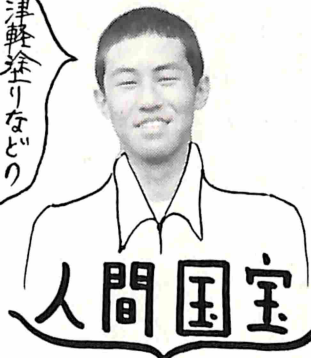 津軽塗りなどの
人間国宝